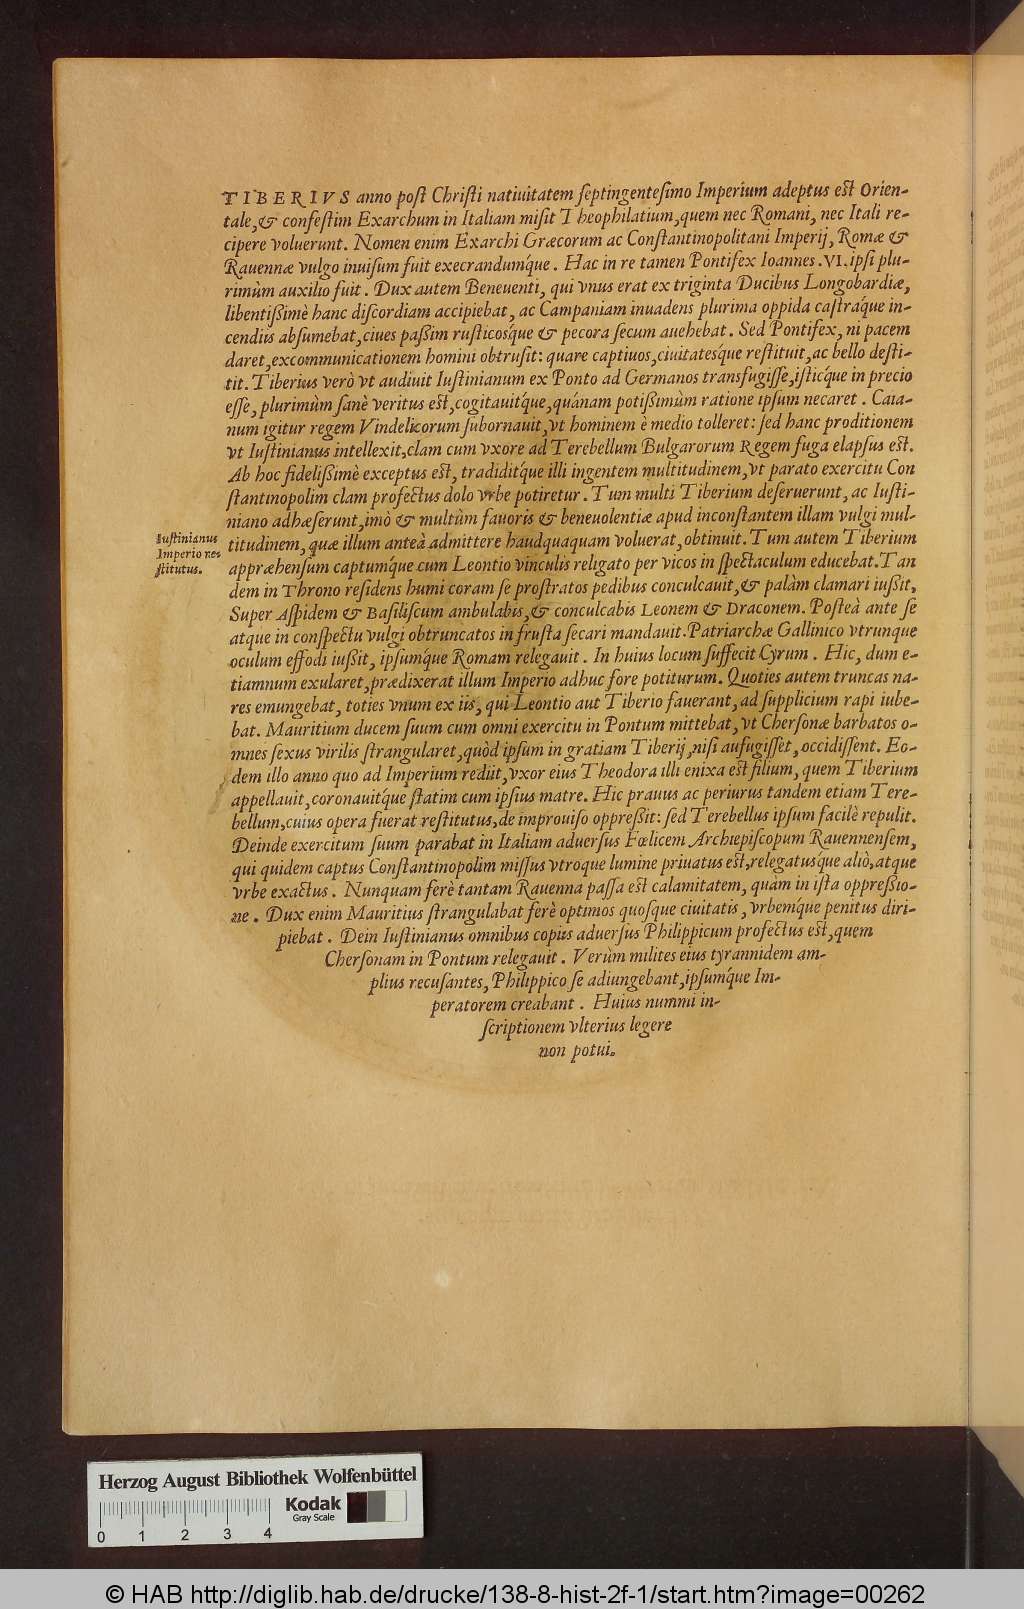 TIBERIVS anno post Christi natiuitatem septingentesimo Imperium adeptus est Orien-
tale,& confestim Exarchum in Italiam misit Theophilatium,quem nec Romani, nec Itali re-
cipere voluerunt. Nomen enim Exarchi Græcorum ac Constantinopolitani Imperij, Romæ &
Rauennæ vulgo inuisum fuit execrandumq́ue. Hac in re tamen Pontifex Ioannes .VI. ipsi plu-
rimùm auxilio fuit. Dux autem Beneuenti, qui vnus erat ex triginta Ducibus Longobardiæ,
libentißimè hanc discordiam accipiebat, ac Campaniam inuadens plurima oppida castraq́ue in-
cendiis absumebat,ciues paßim rusticosq́ue & pecora secum auehebat. Sed Pontifex, ni pacem
daret,excommunicationem homini obtrusit: quare captiuos,ciuitatesq́ue restituit,ac bello desti-
tit. Tiberius verò vt audiuit Iustinianum ex Ponto ad Germanos transfugisse,isticq́ue in precio
esse, plurimùm sanè veritus est,cogitauitq́ue,quánam potißimùm ratione ipsum necaret. Caia-
num igitur regem Vindelicorum subornauit,vt hominem è medio tolleret: sed hanc proditionem
vt Iustinianus intellexit,clam cum vxore ad Terebellum Bulgarorum Regem fuga elapsus est.
Ab hoc fidelißimè exceptus est, tradiditq́ue illi ingentem multitudinem,vt parato exercitu Con
stantinopolim clam profectus dolo vrbe potiretur. Tum multi Tiberium deseruerunt, ac Iusti-
niano adhæserunt,imò & multùm fauoris & beneuolentiæ apud inconstantem illam vulgi mul-
Iustinianus
Imperio res
stitutus.
titudinem, quæ illum anteà admittere haudquaquam voluerat,obtinuit. Tum autem Tiberium
appræhensum captumq́ue cum Leontio vinculis religato per vicos in spectaculum educebat. Tan
dem in Throno residens humi coram se prostratos pedibus conculcauit,& palàm clamari iußit,
Super Aspidem & Basiliscum ambulabis,& conculcabis Leonem & Draconem. Posteà ante se
atque in conspectu vulgi obtruncatos in frusta secari mandauit. Patriarchæ Gallinico vtrunque
oculum effodi iußit, ipsumq́ue Romam relegauit. In huius locum suffecit Cyrum. Hic, dum e-
tiamnum exularet,prædixerat illum Imperio adhuc fore potiturum. Quoties autem truncas na-
res emungebat, toties vnum ex iis, qui Leontio aut Tiberio fauerant, ad supplicium rapi iube-
bat. Mauritium ducem suum cum omni exercitu in Pontum mittebat, vt Chersonæ barbatos o-
mnes sexus virilis strangularet,quòd ipsum in gratiam Tiberij,nisi aufugisset,occidissent. Eo-
dem illo anno quo ad Imperium rediit,vxor eius Theodora illi enixa est filium, quem Tiberium
appellauit,coronauitq́ue statim cum ipsius matre. Hic prauus ac periurus tandem etiam Tere-
bellum,cuius opera fuerat restitutus,de improuiso oppreßit: sed Terebellus ipsum facilè repulit.
Deinde exercitum suum parabat in Italiam aduersus Fœlicem Archiepiscopum Rauennensem,
qui quidem captus Constantinopolim missus vtroque lumine priuatus est,relegatusq́ue aliò,atque
vrbe exactus. Nunquam ferè tantam Rauenna passa est calamitatem, quàm in ista oppreßio-
ne. Dux enim Mauritius strangulabat ferè optimos quosque ciuitatis, vrbemq́ue penitus diri-
piebat. Dein Iustinianus omnibus copiis aduersus Philippicum profectus est,quem
Chersonam in Pontum relegauit. Verùm milites eius tyrannidem am-
plius recusantes, Philippico se adiungebant,ipsumq́ue Im-
peratorem creabant. Huius nummi in-
scriptionem vlterius legere
non potui.
Herzog August Bibliothek Wolfenbüttel
Kodak
Gray Scale
0 1 2 3 4
© HAB http://diglib.hab.de/drucke/138-8-hist-2f-1/start.htm?image=00262